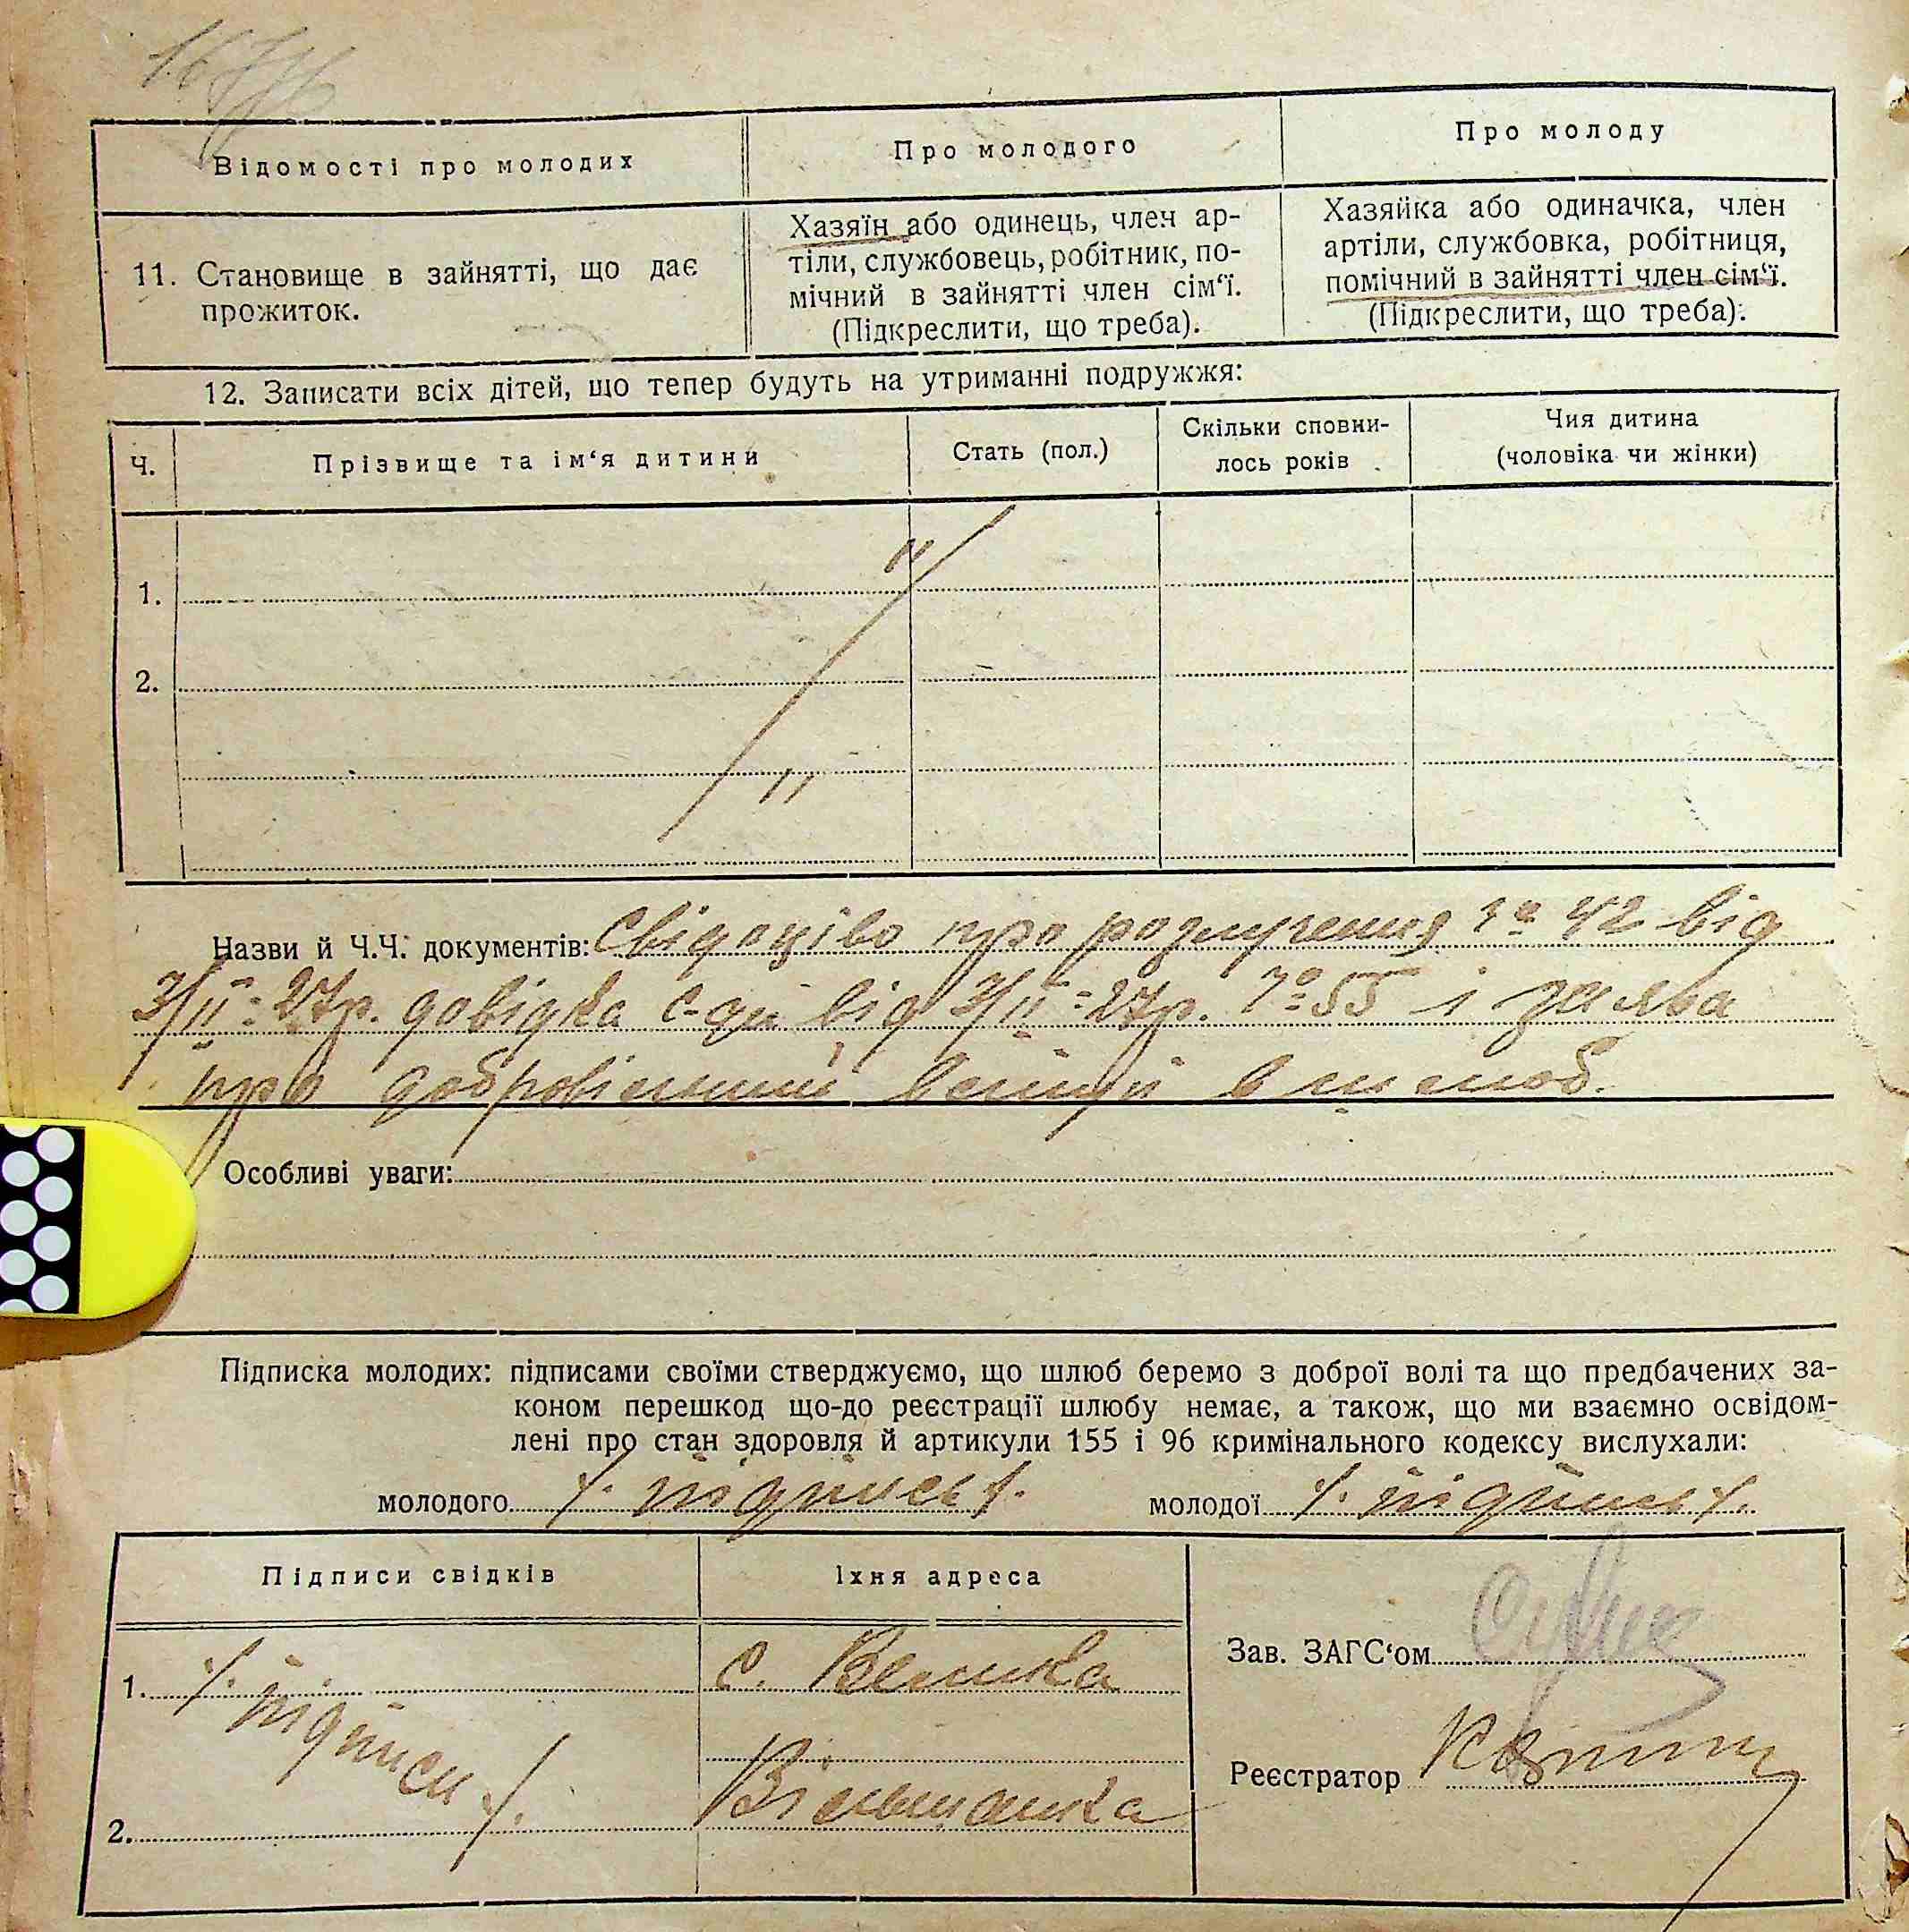 Відомості про молодих
Про молодого
Про молоду
11. Становище в зайнятті, що дає
прожиток.
Хазяїн або одинець, член ар-
тіли, службовець, робітник, по-
мічний в зайнятті член сім‘ї.
(Підкреслити, що треба).
Хазяйка або одиначка, член
артіли, службовка, робітниця,
помічний в зайнятті член сім‘ї.
(Підкреслити, що треба).
12. Записати всіх дітей, що тепер будуть на утриманні подружжя:
Ч.
Прізвище та ім‘я дитини
Стать (пол.)
Скільки сповни-
лось років
Чия дитина
(чоловіка чи жінки)
1.
2.
Назви й Ч.Ч. документів: Свідоцтво про розлучення № 42 від
3/II-27р. довідка с-ди від 3/II-27р. № 55 і заява
про добровільний вступ в шлюб.
Особливі уваги:
Підписка молодих: підписами своїми стверджуємо, що шлюб беремо з доброї волі та що предбачених за-
коном перешкод що-до реєстрації шлюбу немає, а також, що ми взаємно освідом-
лені про стан здоровля й артикули 155 і 96 кримінального кодексу вислухали:
молодого /. підпись /. молодої /. підпись /.
Підписи свідків
Їхня адреса
1. /. підписи /.
2.
с. Велика
Вільшанка
Зав. ЗАГС‘ом
Реєстратор